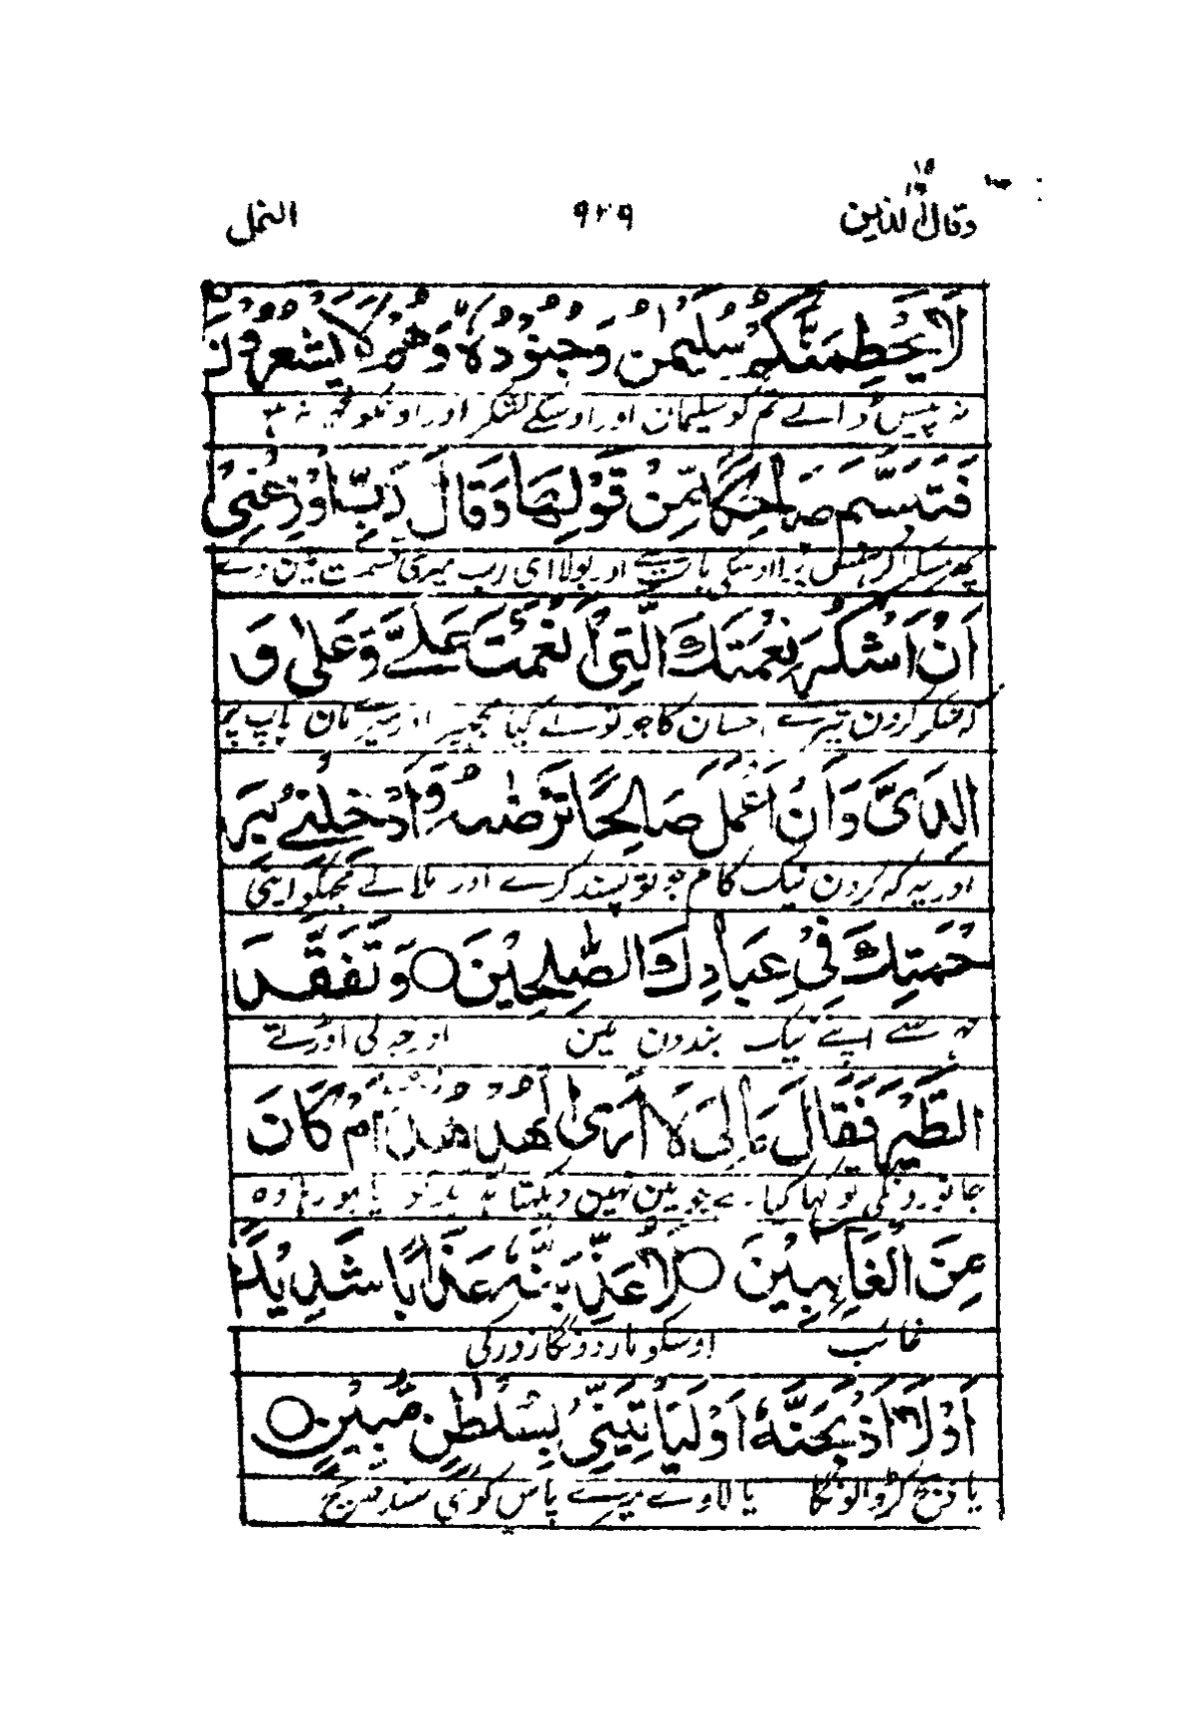 وقال الذين ١٩ ٩٢٩ النمل
لَا يَحْطِمَنَّكُمْ سُلَيْمٰنُ وَجُنُوْدُهٗ وَهُمْ لَا يَشْعُرُوْنَ
نہ پیس ڈالے تم کو سلیمان اور اوسکے لشکر اور اونکو خبر نہ ہو
فَتَبَسَّمَ ضَاحِكًا مِّنْ قَوْلِهَا وَقَالَ رَبِّ اَوْزِعْنِىْ
پھر مسکرا کر ہنس پڑا اوسکی بات سے اور بولا ای رب میری قسمت مین دے
اَنْ اَشْكُرَ نِعْمَتَكَ الَّتِىْ اَنْعَمْتَ عَلَىَّ وَعَلٰى وَ
کہ شکر کرون تیرے احسان کا جو تونے کیا مجھپر اور میرے مان باپ پر
الِدَىَّ وَاَنْ اَعْمَلَ صَالِحًا تَرْضٰىهُ وَاَدْخِلْنِىْ بِرَ
اور یہ کہ کرون نیک کام جو تو پسند کرے اور ملا لے مجھکو اپنی
حْمَتِكَ فِىْ عِبَادِكَ الصّٰلِحِيْنَ ○ وَتَفَقَّدَ
مہر سے اپنے نیک بندون مین اور خبر لی اوڑتے
الطَّيْرَ فَقَالَ مَا لِىَ لَا اَرَى الْهُدْهُدَ اَمْ كَانَ
جانورونکی تو کہا کیا ہے جو مین نہین دیکھتا ہدہد کو یا ہو رہا وہ
مِنَ الْغَآئِبِيْنَ ○ لَاُعَذِّبَنَّهٗ عَذَابًا شَدِيْدًا
غائب اوسکو مار دونگا زور کی
اَوْ لَاَاذْبَحَنَّهٗ اَوْ لَيَاْتِيَنِّىْ بِسُلْطٰنٍ مُّبِيْنٍ ○
یا ذبح کر ڈالونگا یا لاوے میرے پاس کوئی سند صریح